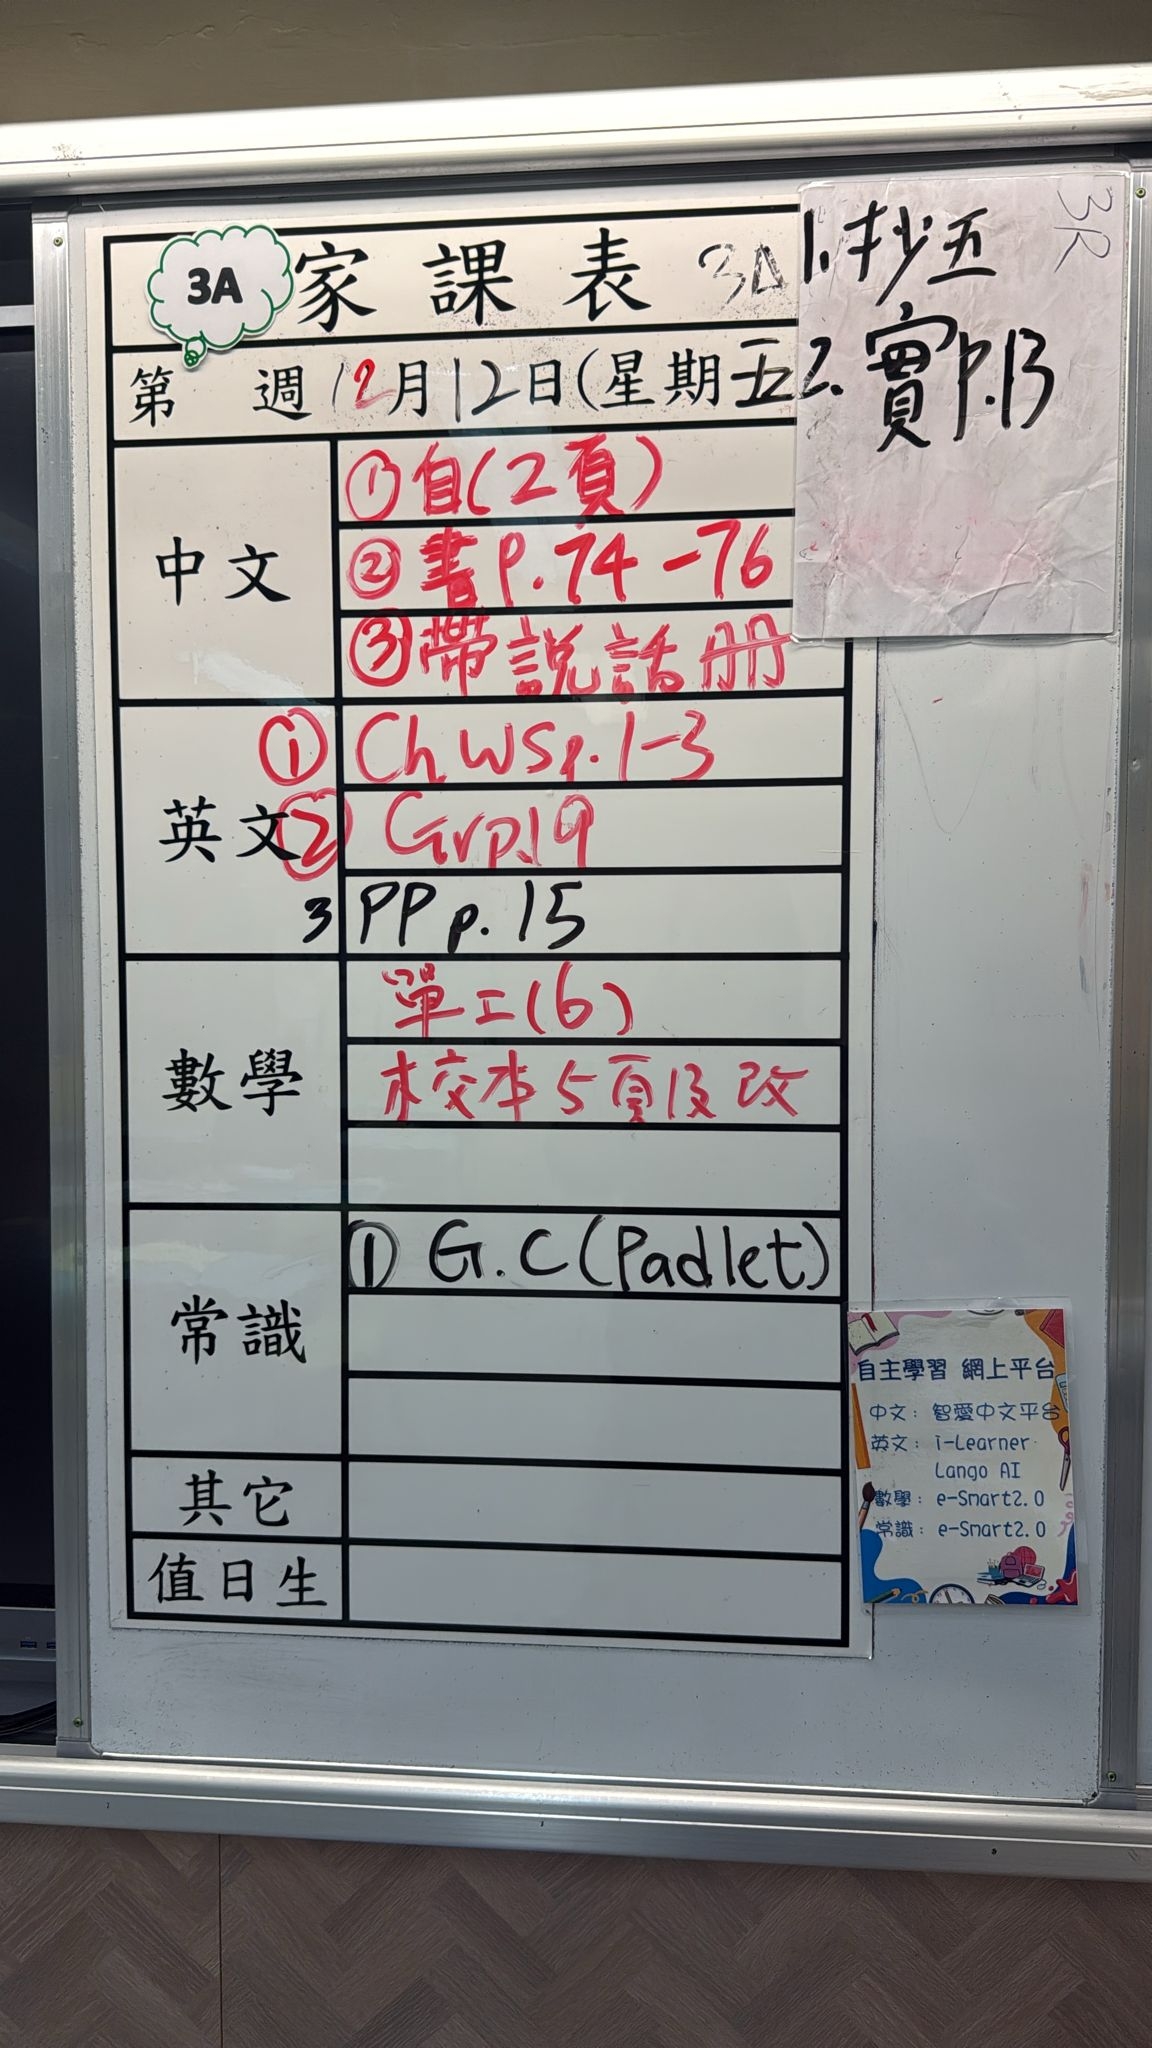 3A
家課表 3A
第 週 12月12日(星期五
3R
1.抄五
2.實P.13
中文
①自(2頁)
②書P.74-76
③帶說話册
英文
① Ch WS p.1-3
② Gr p.19
3 PP p.15
數學
單工(6)
校本5頁及改
常識
① G.C(Padlet)
其它
值日生
自主學習 網上平台
中文：智愛中文平台
英文：i-Learner
Lango AI
數學：e-Smart2.0
常識：e-Smart2.0